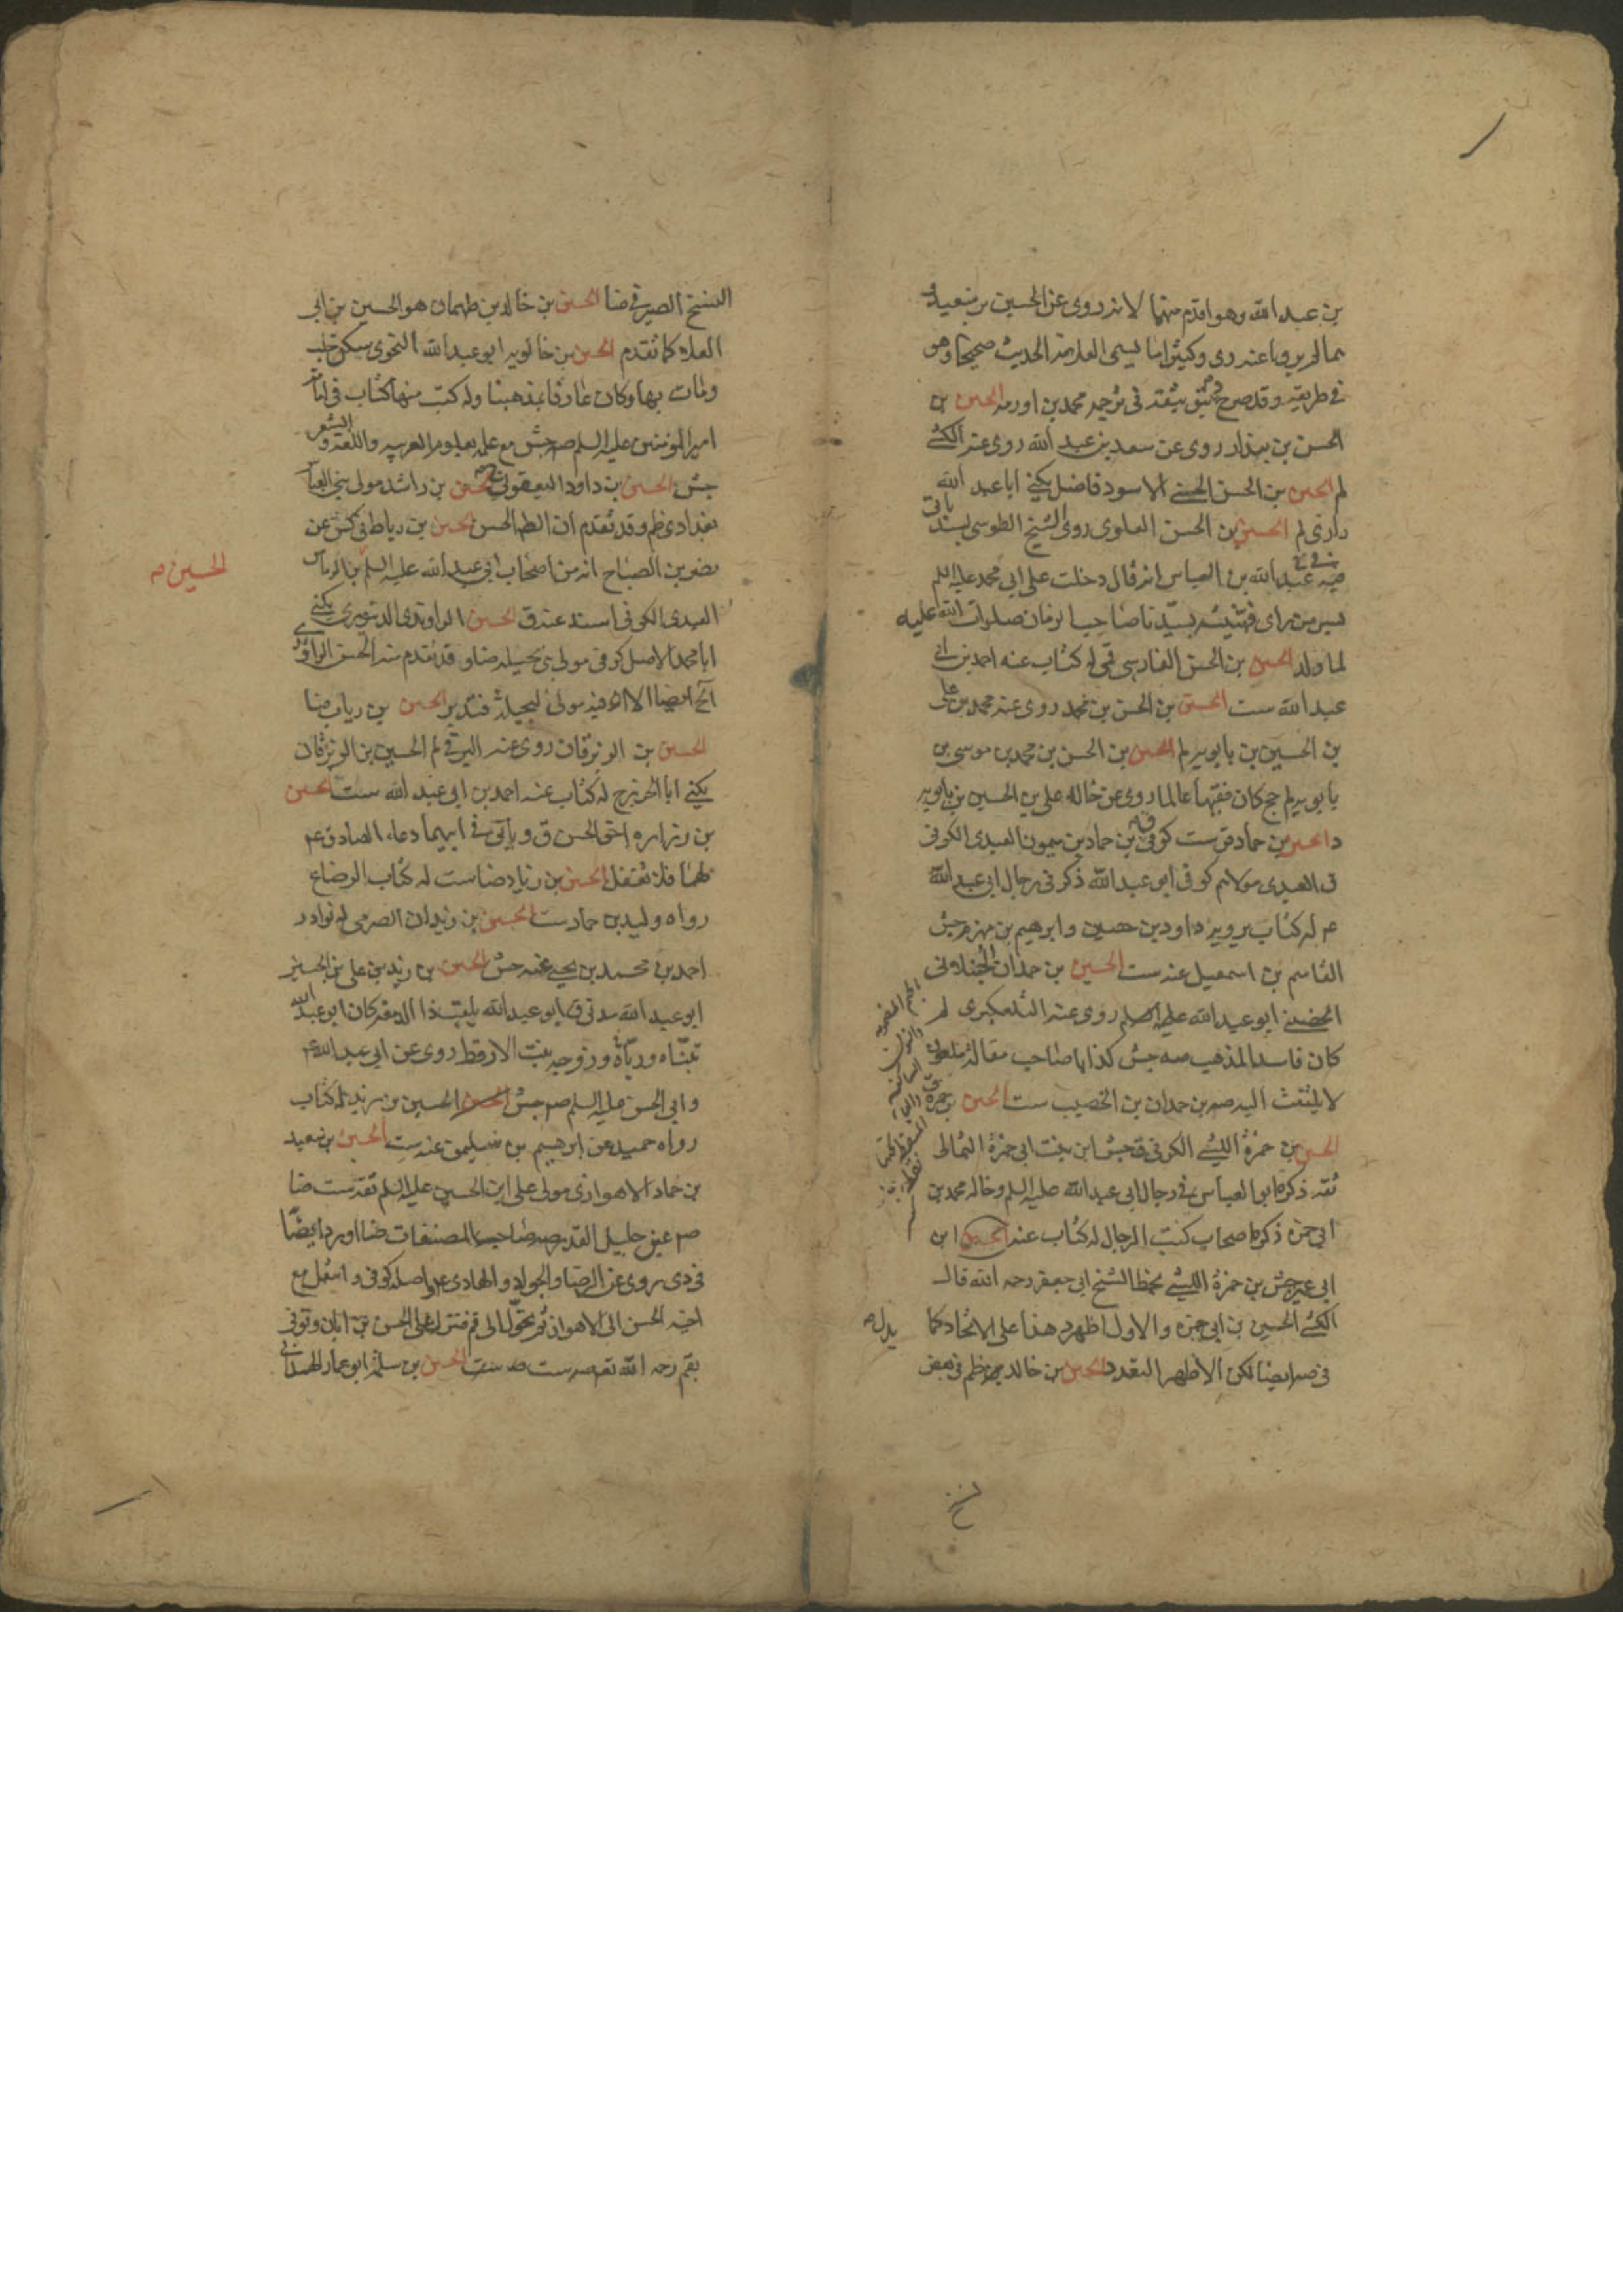 بن عبد الله وهو اقدم منهما لانه روى عن الحسين بن سعيد
مما لم يرويا عنه وكثيرا ما يسمى العلامة الحديث صحيحا وهو
في طريقه وقد صرح بتوثيقه في ترجمة محمد بن اورمه الحسين بن
الحسن بن بندار روى عن سعد بن عبد الله روى عنه الكشي
لم الحسين بن الحسن الحسني الاسود فاضل يكنى ابا عبد الله
رازي لم الحسين بن الحسن العلوي روى الشيخ الطوسي بسند ياتي
فيه عبد الله بن العباس انه قال دخلت على ابي محمد عليه السلم
بسر من راى فهنيته بسيدنا صاحب الزمان صلوات الله عليه
لما ولد الحسين بن الحسن الفارسي قمي له كتاب عنه احمد بن ابي
عبد الله ست الحسين بن الحسن بن محمد روى عنه محمد بن علي
بن الحسين بن بابويه لم الحسين بن الحسن بن محمد بن موسى بن
بابويه لم جح كان فقيها عالما روى عن خاله علي بن الحسين بن بابويه
د الحسين بن حماد ق ست كوفي بن حماد بن ميمون العبدي الكوفي
ق العبدي مولاهم كوفي ابو عبد الله ذكر في رجال ابي عبد الله
ع له كتاب يرويه داود بن حصين وابرهيم بن مهزم جش
القاسم بن اسمعيل عنه ست الحسين بن حمدان الجنبلاني
الحضيني ابو عبد الله روى عنه التلعكبري لم
كان فاسد المذهب صه جش كذابا صاحب مقالة ملعونة
لا يلتفت اليه صه بن حمدان بن الخصيب ست الحسين بن حمزة
الحسين بن حمزة الليثي الكوفي ق جش ابن بنت ابي حمزة الثمالي
ثقة ذكره ابو العباس في رجال ابي عبد الله عليه السلم وخاله محمد بن
ابي حمزة ذكره اصحاب كتب الرجال له كتاب عنه الحسين ابن
ابي عمير جش بن حمزة الليثي بخط الشيخ ابي جعفر رحمه الله قال
الكشي الحسين بن ابي حمزة والاول اظهر هذا على الاتحاد كما
يدل
في صه ايضا لكن الاظهر التعدد الحسين بن خالد ظم في بعض
نسخ
النسخ الصيرفي ضا الحسين بن خالد بن طهمان هو الحسين بن ابي
العلاء كما تقدم الحسين بن خالويه ابو عبد الله النحوي سكن حلب
ومات بها وكان عارفا بمذهبنا وله كتب منها كتاب في امامة
امير المؤمنين عليه السلم صه جش مع علمه بعلوم العربيه واللغة والشعر
جش الحسين بن داود اليعقوبي الحسين بن راشد مولى بني العباس
بغدادي ظم وقد تقدم ان الظاهر الحسن الحسين بن رباط في كش عن
نصر بن الصباح انه من اصحاب ابي عبد الله عليه السلم بن الرماس
الحسين
العبدي الكوفي اسند عنه ق الحسين الراوندي الدينوري يكنى
ابا محمد الاصل كوفي مولى بني بجيله ضا وقد تقدم منه الحسن الراوندي
الخ ايضا الا ان فيه مولى لبجيلة فتدبر الحسين بن رياب ضا
الحسين بن الزبرقان روى عنه البرقي لم الحسين بن الزبرقان
يكنى ابا الخزرج له كتاب عنه احمد بن ابي عبد الله ست الحسين
بن زراره اخو الحسن ق وياتي في ابيهما دعاء الصادق ع
لهما فلا تغفل الحسين بن زياد ضا ست له كتاب الرضاع
رواه وليد بن حماد ست الحسين بن زيدان الصرمي له نوادر
احمد بن محمد بن يحيى عنه جش الحسين بن زيد بن علي بن الحسين
ابو عبد الله مدني ق ابو عبد الله يلقب ذا الدمعة كان ابو عبد الله
تبناه ورباه وزوجه بنت الارقط روى عن ابي عبد الله ع
وابي الحسن عليه السلم صه جش الحسين الحسين بن زيد له كتاب
رواه حميد عن ابرهيم بن سليمن عنه ست الحسين بن سعيد
بن حماد الاهوازي مولى علي ابن الحسين عليه السلم ثقة ست ضا
صه عين جليل القدر صه صاحب المصنفات ضا اورد ايضا
في دى روى عن الرضا والجواد والهادي ع اصله كوفي وانتقل مع
اخيه الحسن الى الاهواز ثم تحول الى قم فنزل على الحسن بن ابان وتوفى
بقم رحمه الله صه ست الحسين بن سلمة ابو عمار الهمداني